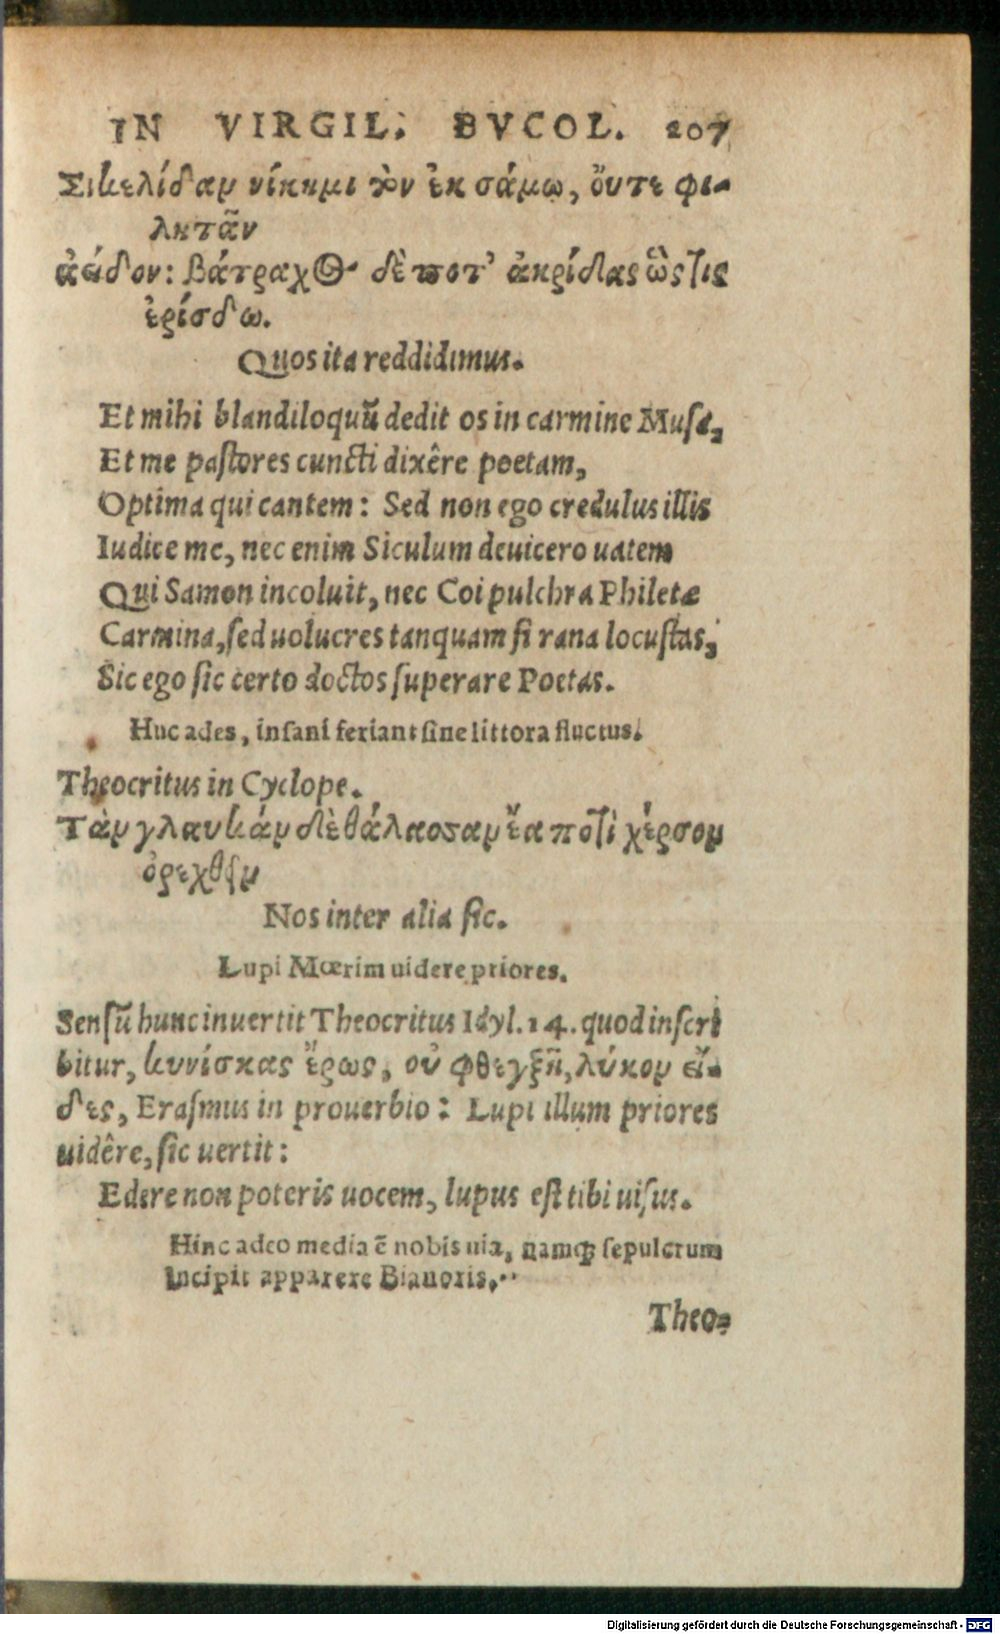 IN VIRGIL. BVCOL. 207
Σικελίδαν νίκημι τὸν ἐκ σάμω, ὄυτε φι-
λητᾶν
ἀείδον: βάτραχος δὲ ποτ' ἀκρίδας ὥς τις
ἐρίσδω.
Quos ita reddidimus.
Et mihi blandiloquũ dedit os in carmine Musa,
Et me pastores cuncti dixêre poetam,
Optima qui cantem: Sed non ego credulus illis
Iudice me, nec enim Siculum deuicero uatem
Qui Samon incoluit, nec Coi pulchra Philetæ
Carmina, sed uolucres tanquam si rana locustas,
Sic ego sic certo doctos superare Poetas.
Huc ades, insani feriant sine littora fluctus.
Theocritus in Cyclope.
Τὰν γλαυκὰν δὲ θάλασσαν ἔα ποτὶ χέρσον
ὀρεχθεῖν
Nos inter alia sic.
Lupi Mœrim uidere priores.
Sensũ hunc inuertit Theocritus Idyl. 14. quod inscri
bitur, κυνίσκας ἔρως, οὐ φθεγξῇ, λύκον εἶ-
δες, Erasmus in prouerbio: Lupi illum priores
uidêre, sic uertit:
Edere non poteris uocem, lupus est tibi uisus.
Hinc adeo media ẽ nobis uia, namq; sepulcrum
Incipit apparere Bianoris.
Theo-
Digitalisierung gefördert durch die Deutsche Forschungsgemeinschaft - DFG